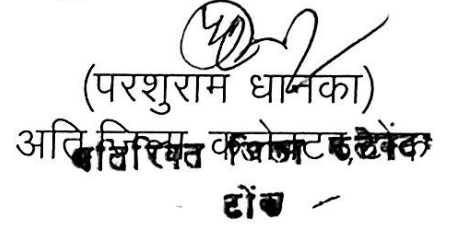 (परशुराम धानका)
अति जिला कलेक्टर, टोंक
अतिरिक्त जिला कलेक्टर
टोंक